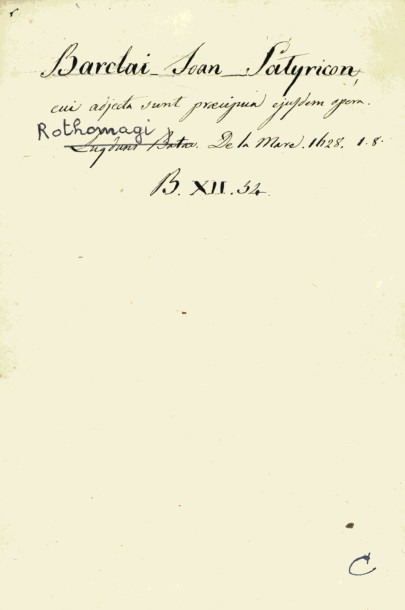 Barclai_Joan_Satyricon,
cui adjecta sunt præcipua ejusdem opera.
Rothomagi
Lugduni Batav. De la Mare. 1628. 1.8.
B. XII. 54.
C